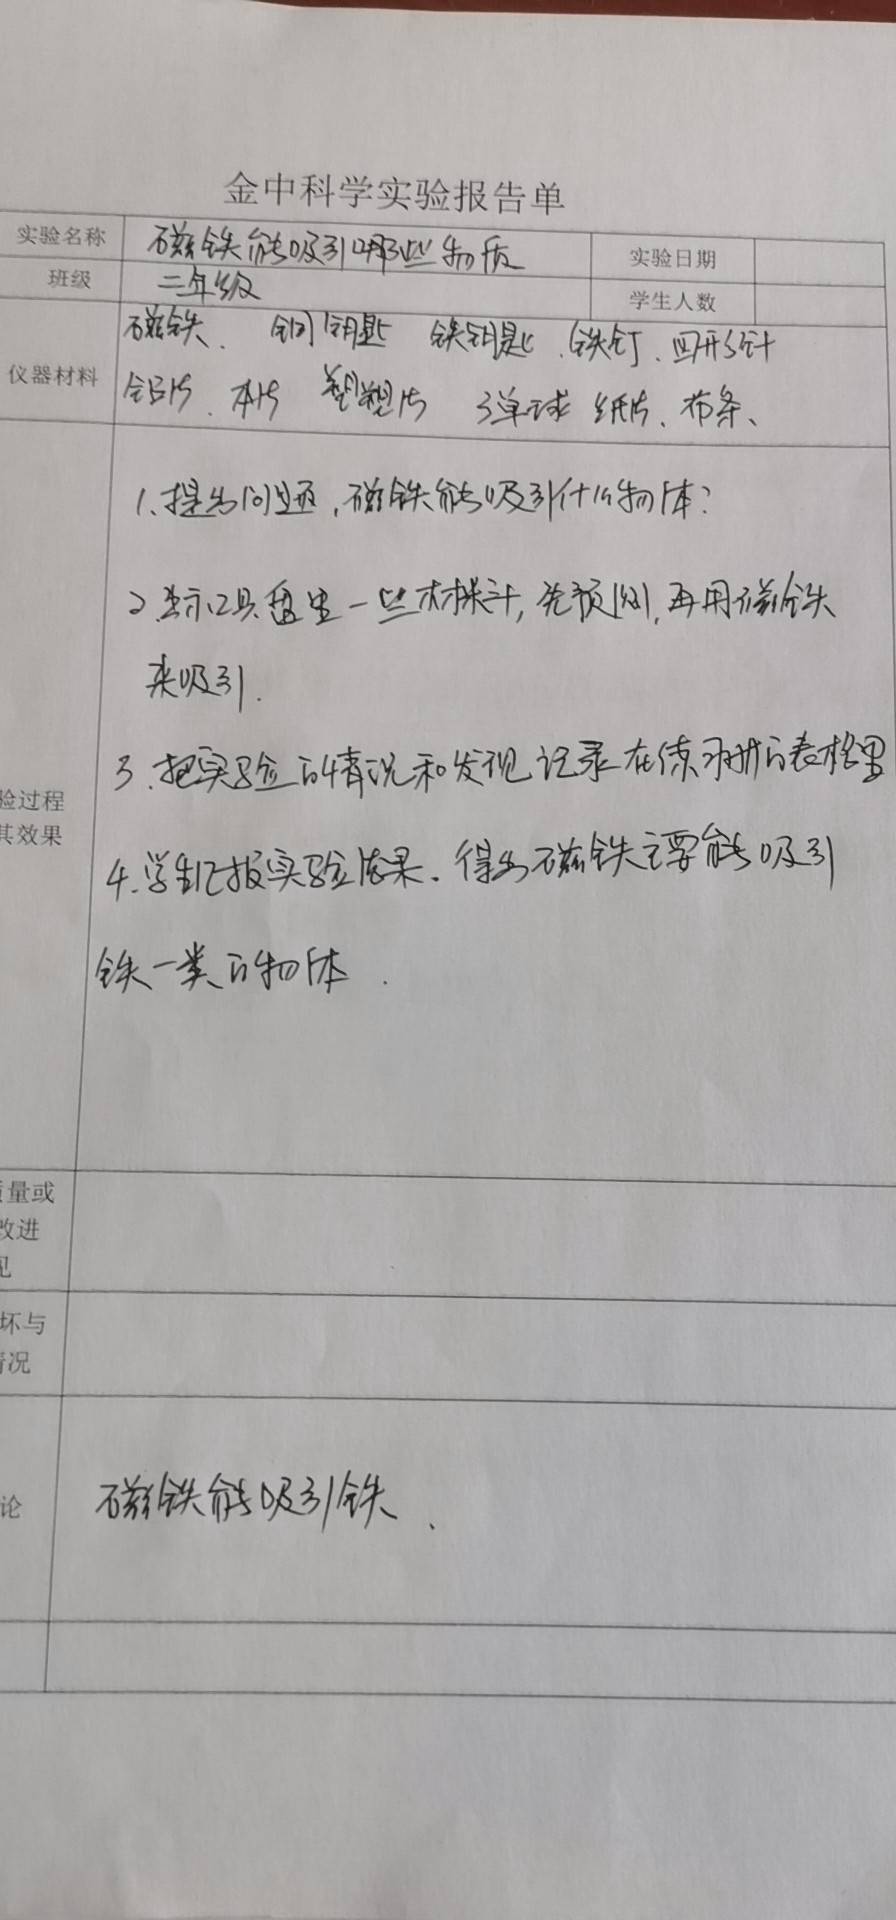 金中科学实验报告单
实验名称 磁铁能吸引哪些物质 实验日期
班级 二年级 学生人数
仪器材料 磁铁、铜钥匙 铁钥匙、铁钉、回形针
铝片、木片 塑料片 弹球 纸片、布条、
1、提出问题,磁铁能吸引什么物体?
2、出示工具盘里一些材料,先预测,再用磁铁
来吸引.
3、把实验的情况和发现记录在练习册的表格里
验过程
其效果
4、学生汇报实验结果.得出磁铁主要能吸引
铁一类的物体.
质量或
改进
见
坏与
情况
论 磁铁能吸引铁、